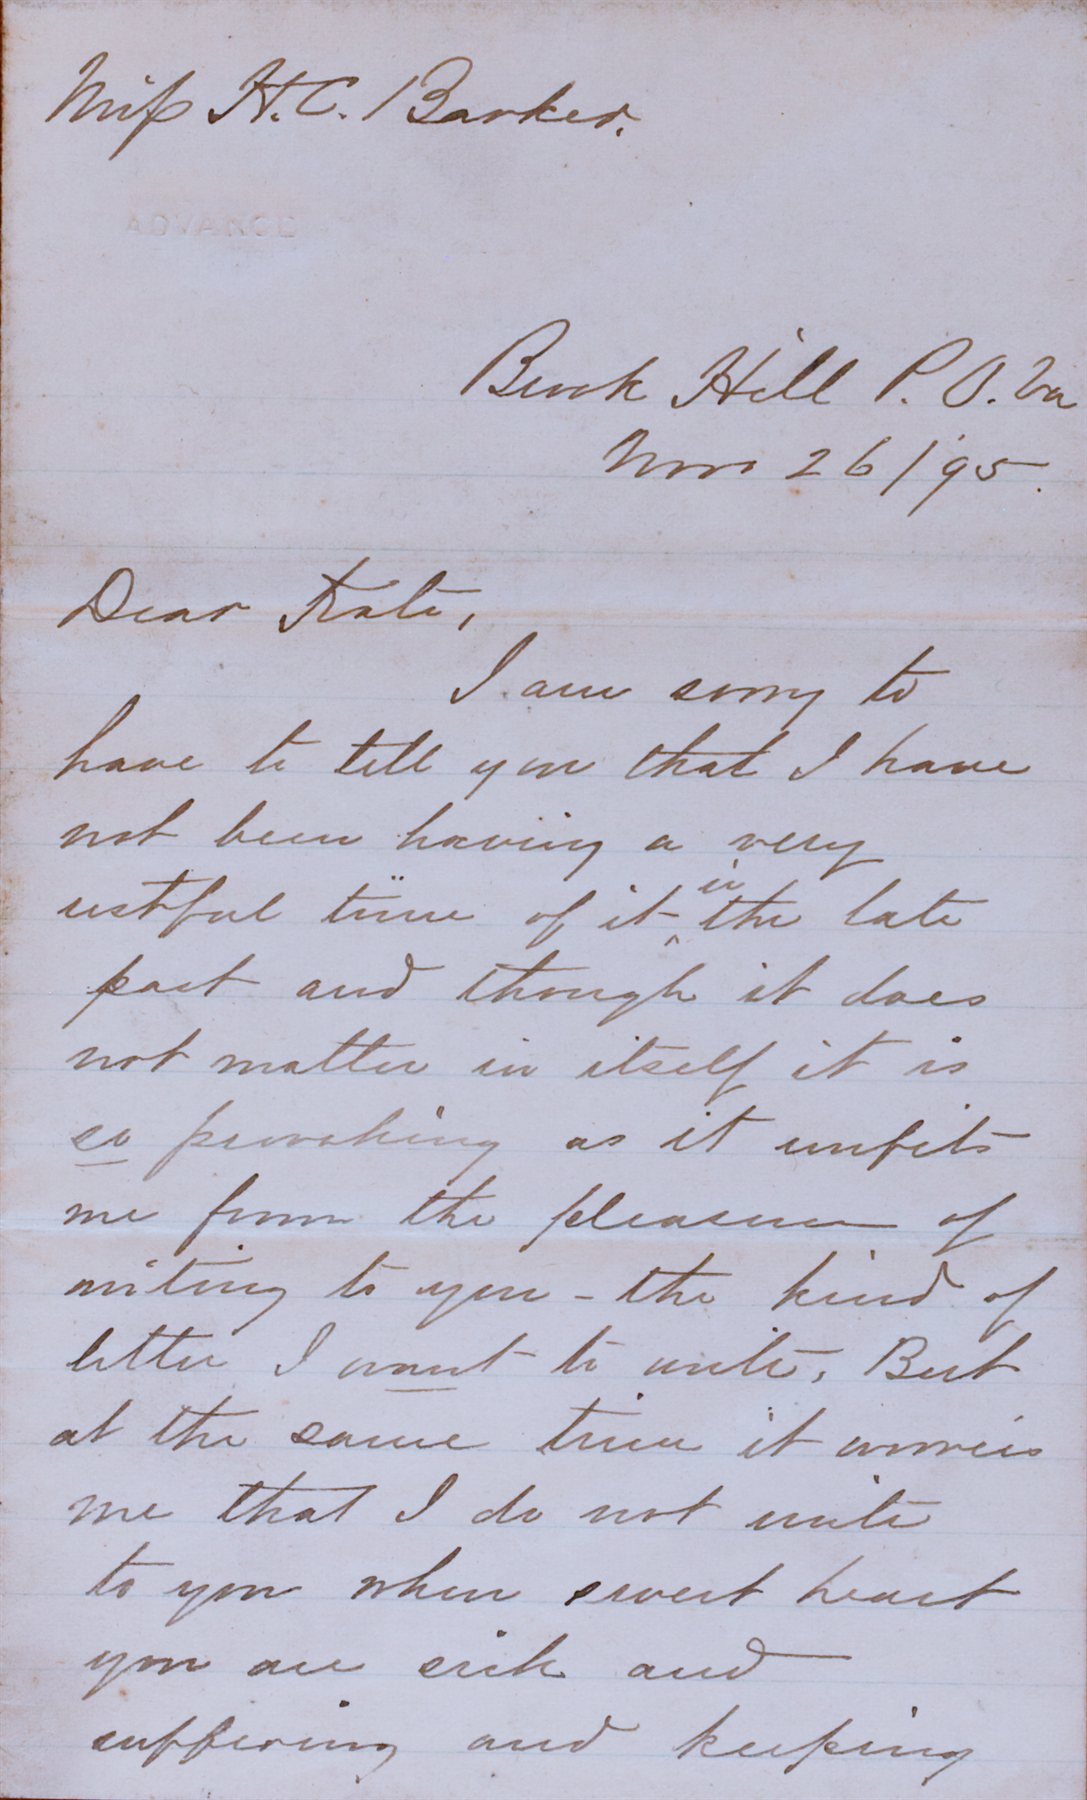 Miss H. C. Barker.
ADVANCE
Brook Hill P. O. Va
Nov 26/95.
Dear Kate,
I am sorry to
have to tell you that I have
not been having a very
restful time of it in the late
past and though it does
not matter in itself it is
so provoking as it unfits
me from the pleasure of
writing to you - the kind of
letter I want to write. But
at the same time it worries
me that I do not write
to you when sweet heart
you are sick and
suffering and keeping